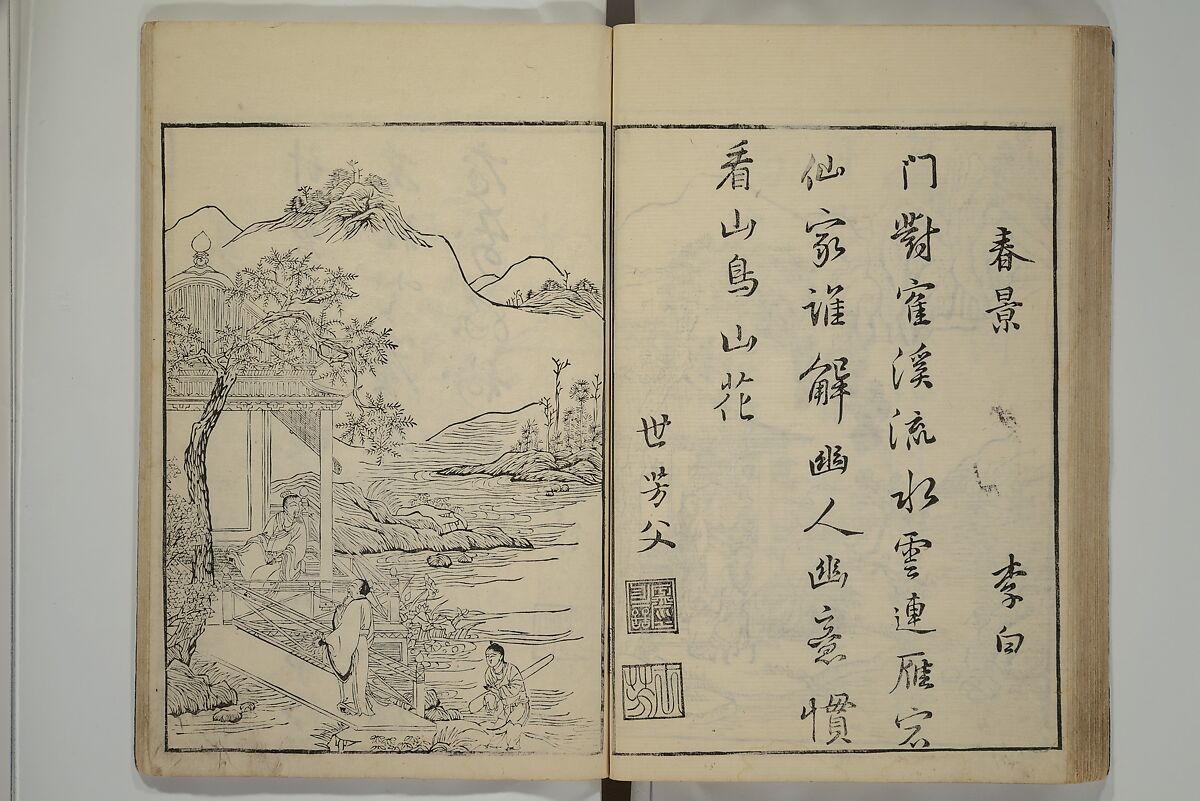 春景 李白
門對寉溪流水雲連雁宕
仙家誰解幽人幽意慣
看山鳥山花
世芳父